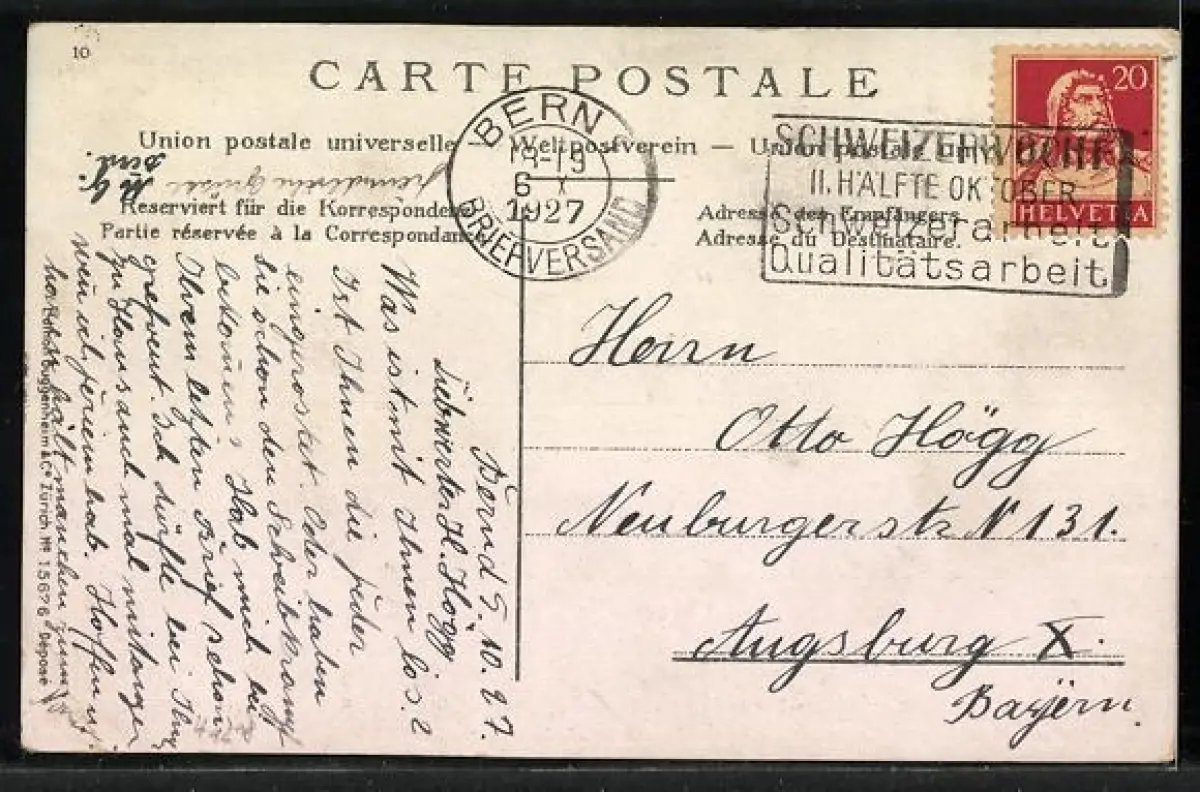 10
CARTE POSTALE
Union postale universelle — Weltpostverein — Union postale
BERN
18-19
6 X
1927
BRIEFVERSAND
SCHWEIZERWOCHE
II. HÄLFTE OKTOBER
Schweizerarbeit
Qualitätsarbeit
20
HELVETIA
Reserviert für die Korrespondenz
Partie réservée à la Correspondance
Adresse des Empfängers.
Adresse du Destinataire.
Herrn
Otto Högg
Neuburgerstr N 131.
Augsburg X.
Bayern.
Bern d 5. 10. 27.
Liebwerter H. Högg
Was ist mit Ihnen los?
Ist Ihnen die Feder
eingerostet. Oder haben
sie schon den Schreibkrampf
bekommen? Hab mich bei
Ihrem letzten Brief schon
gefreut. Ich dürfte bei Ihnen
zu Haus auch mal
wenn ich Ferien hab. Hoffnung
hält manchen
Guggenheim & Co Zürich. No 15676 Déposé